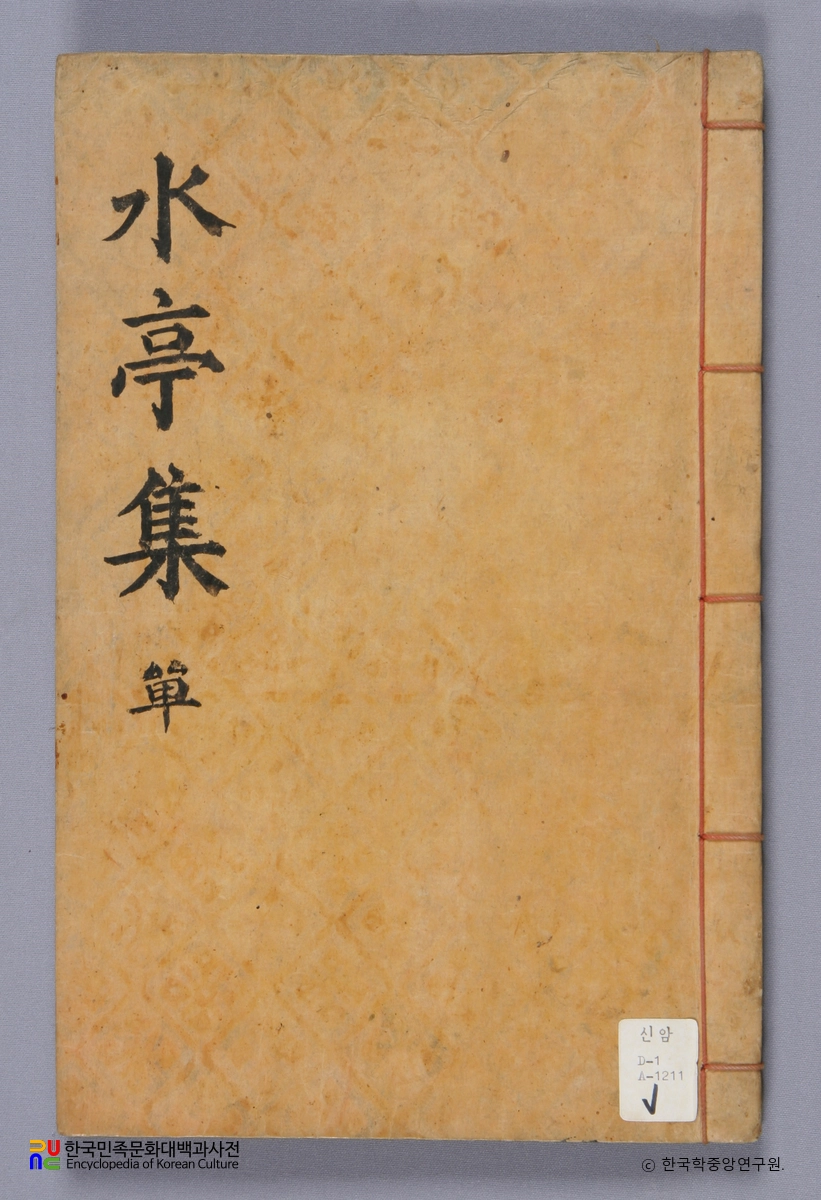 水亭集 單
신암
D-1
A-1211
한국민족문화대백과사전
Encyclopedia of Korean Culture
© 한국학중앙연구원.